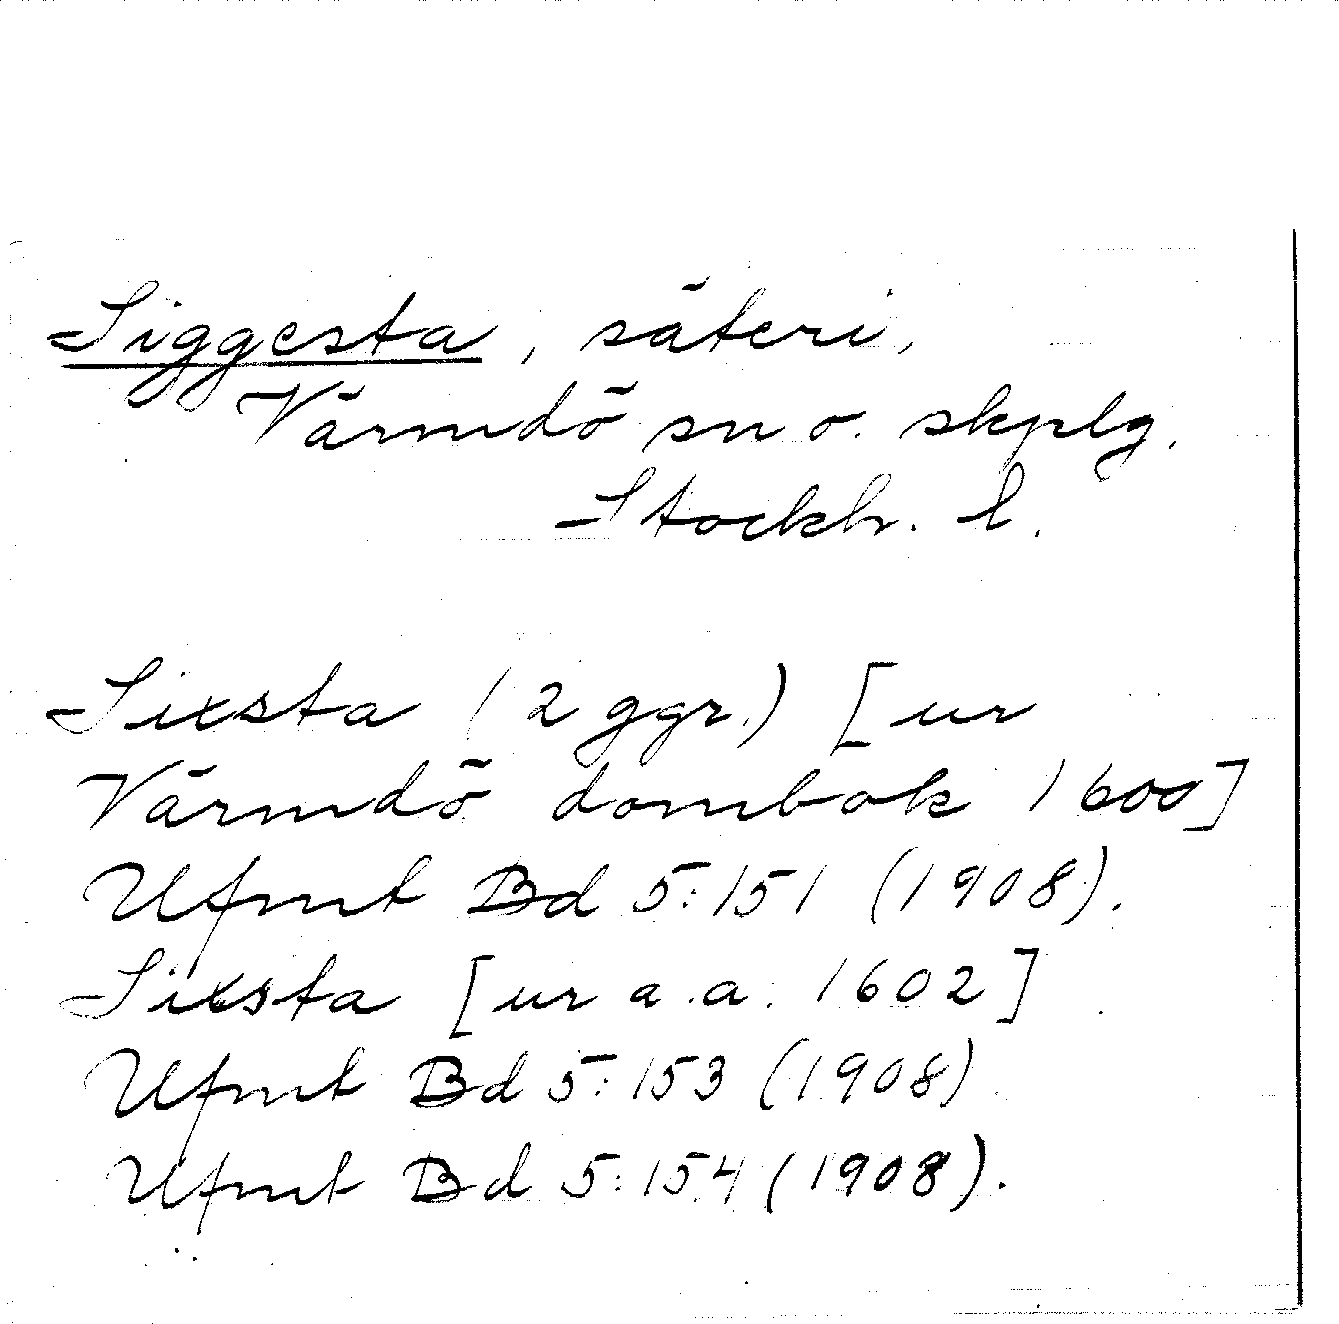 Siggesta, säteri,
Värmdö sn o. skplg.
Stockh. l.
Sixsta (2 ggr.) [ur
Värmdö dombok 1600]
Ufmt Bd 5:151 (1908).
Sixsta [ur a.a. 1602]
Ufmt Bd 5:153 (1908)
Ufmt Bd 5:154 (1908).